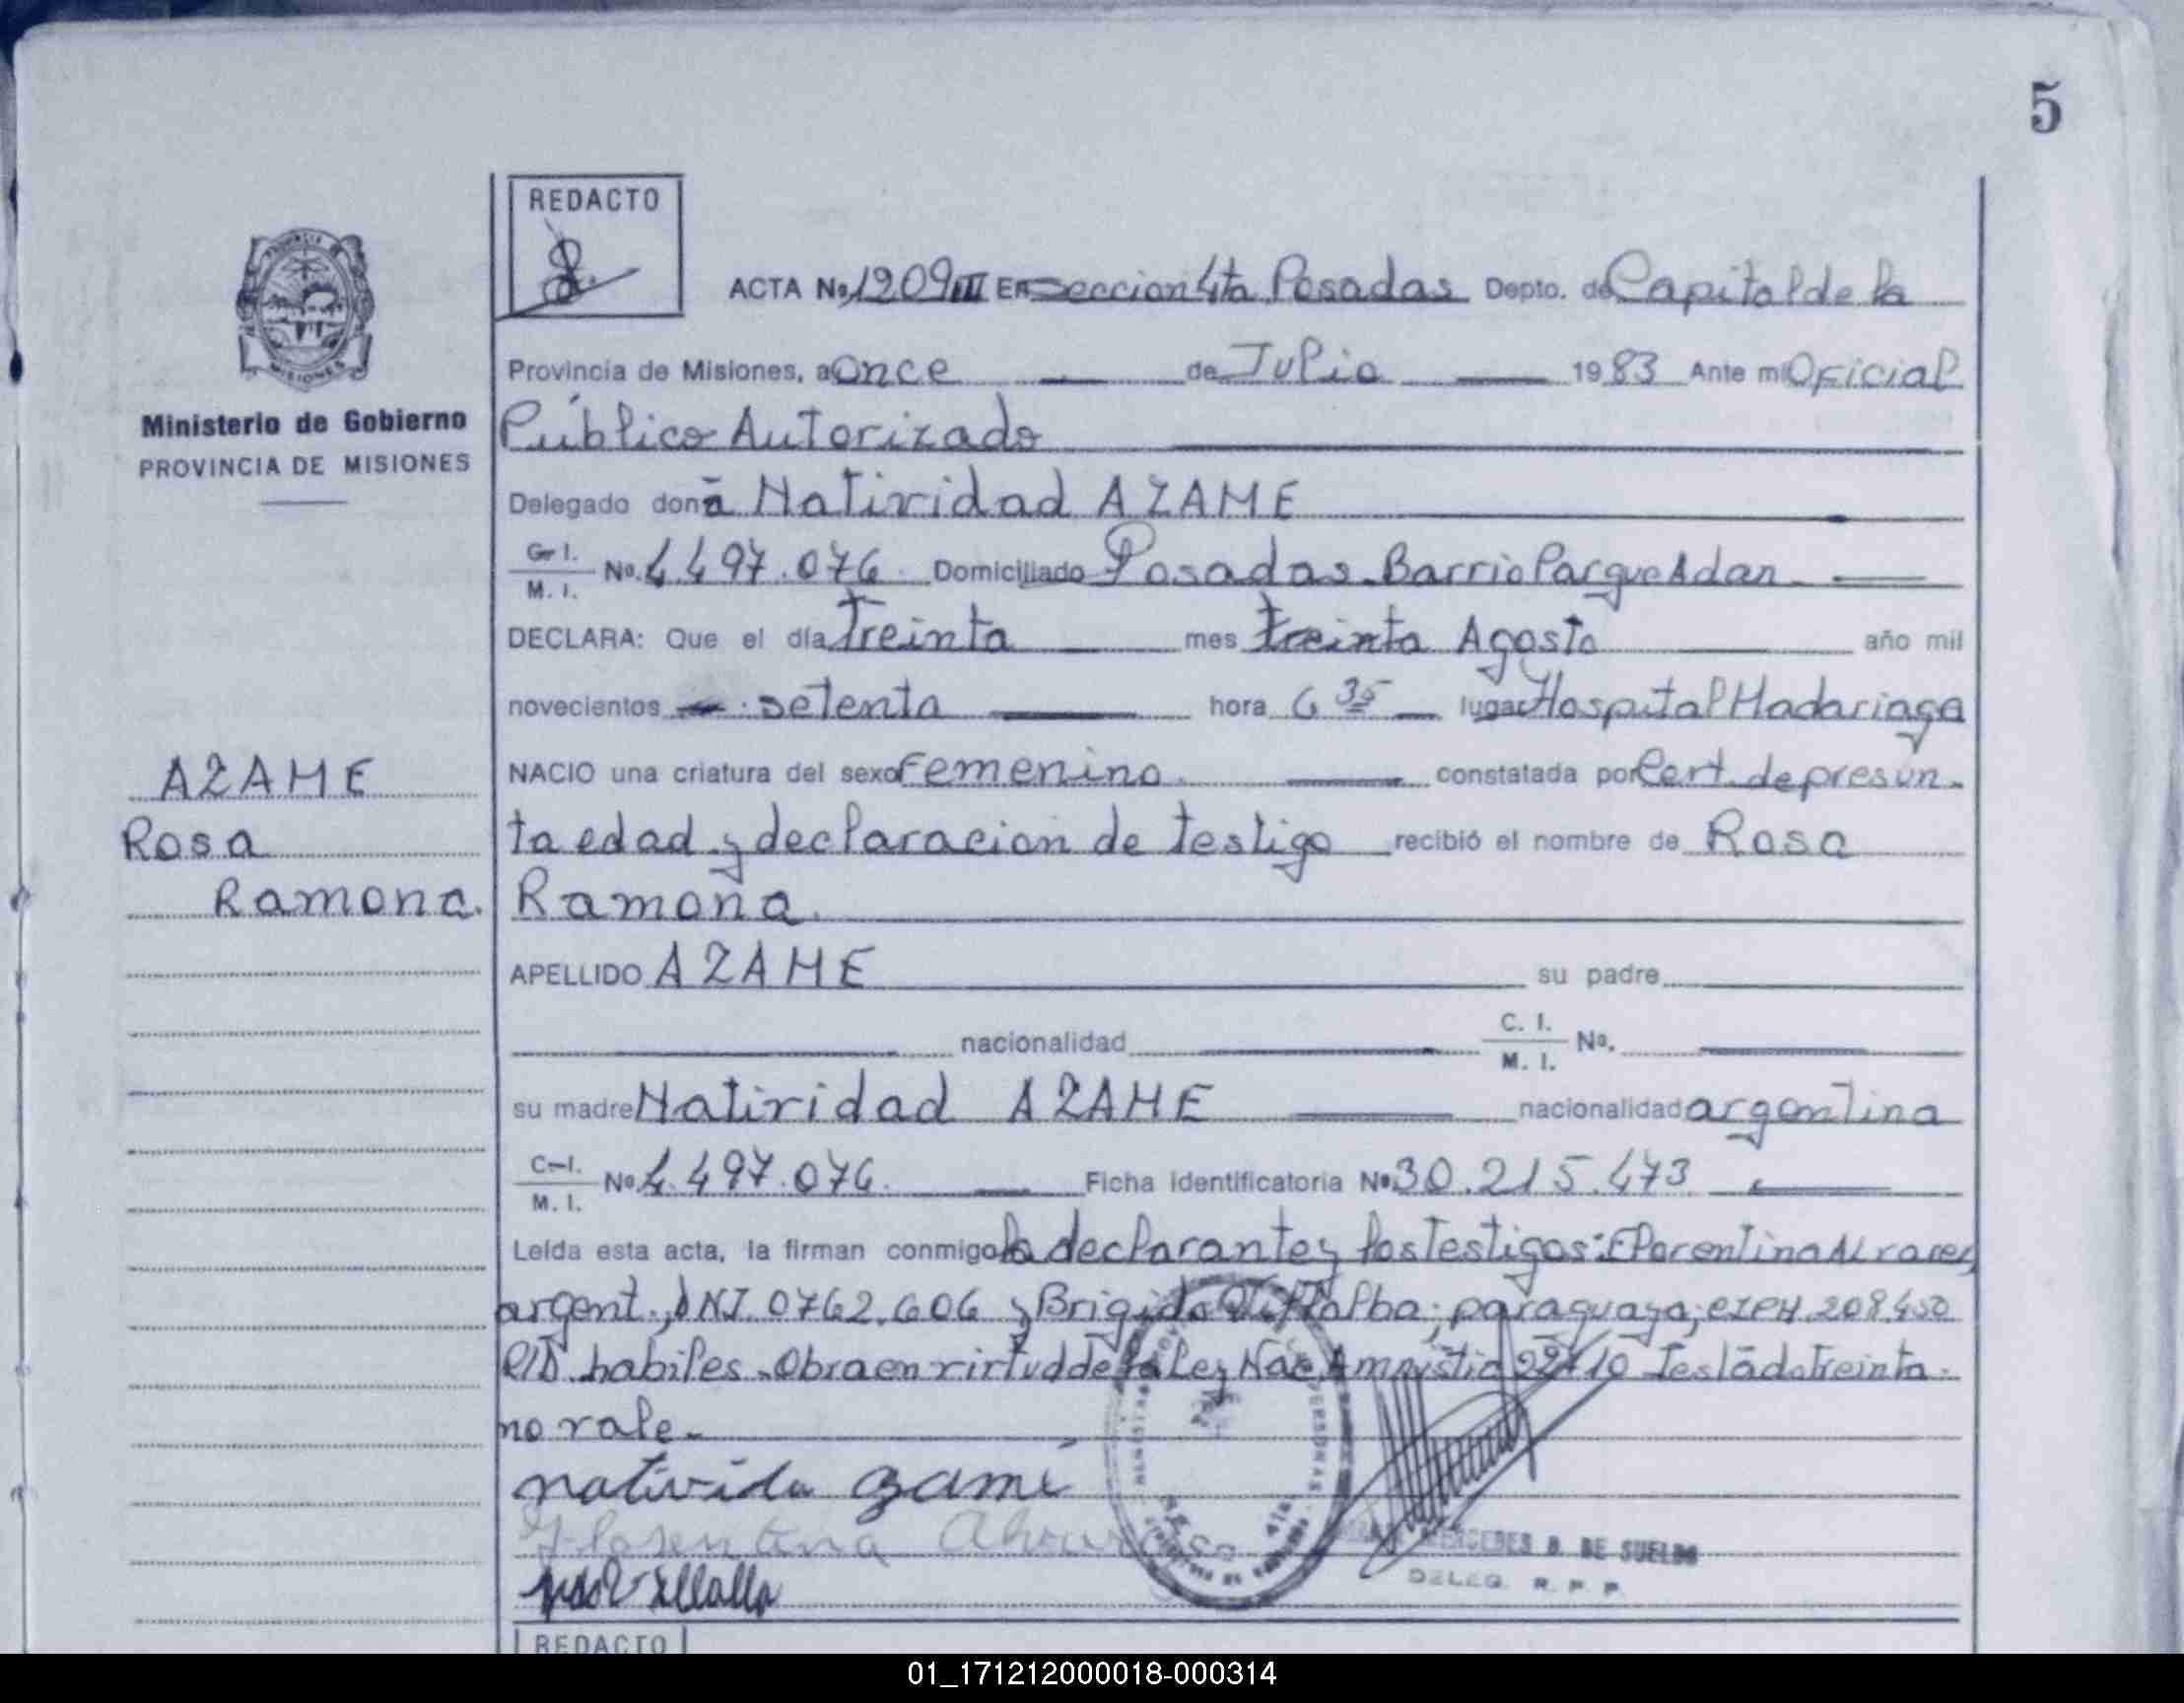 5
REDACTO
ACTA No. 1209 III En seccion 4ta Posadas Depto. de Capital de la
Provincia de Misiones, a once de Julio 1983 Ante mi Oficial
Público Autorizado
Ministerio de Gobierno
PROVINCIA DE MISIONES
Delegado donã Natividad AZAME
C. I.
M. I. No. 4.497.076 Domiciliado Posadas Barrio Parque Adan
DECLARA: Que el día Treinta mes treinta Agosto año mil
novecientos setenta hora 6 35 lugar Hospital Madariaga
NACIO una criatura del sexo Femenino. constatada por Cert. de presun-
ta edad y declaracion de testigo recibió el nombre de Rosa
Ramona.
AZAME
Rosa
Ramona.
APELLIDO AZAME su padre
nacionalidad C. I.
M. I. No.
su madre Natividad AZAME nacionalidad argentina
C. I.
M. I. No. 4.497.076. Ficha identificatoria No. 30.215.473
Leída esta acta, la firman conmigo la declarante y los testigos: Florentina Alvarez
argent., DNI 0762.606 y Brigida paraguaya, 208.450
habiles. Obra en virtud de la Ley Nac Amnistia 22410 Testado treinta.
no vale.
nativida azame
Florentina
MERCEDES B. DE SUELDO
DELEG. R. P. P.
REDACTO
01_171212000018-000314